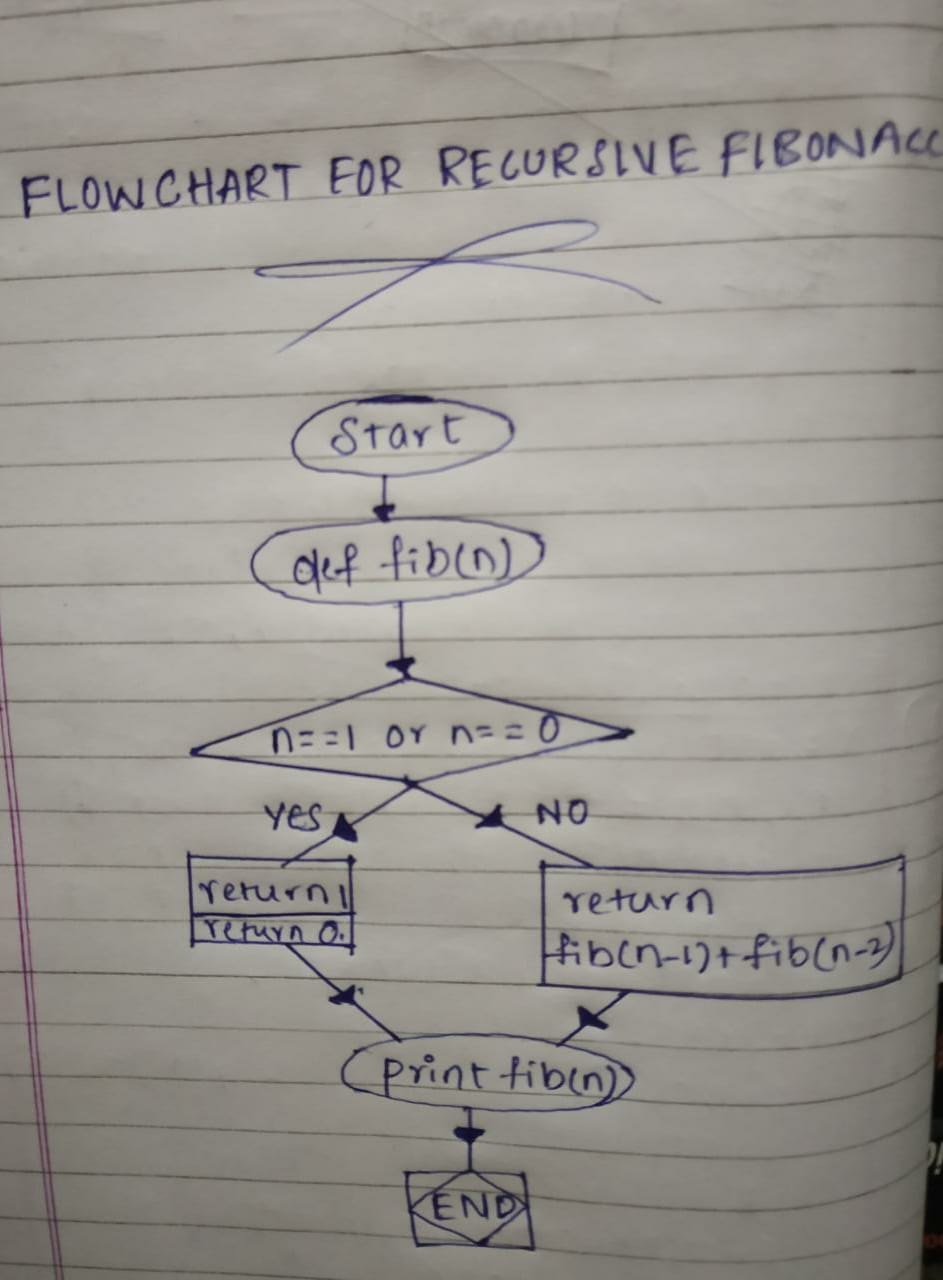 FLOWCHART FOR RECURSIVE FIBONACC
Start
def fib(n)
n==1 or n==0
YES
NO
return 1
return 0.
return
fib(n-1)+fib(n-2)
print fib(n))
END